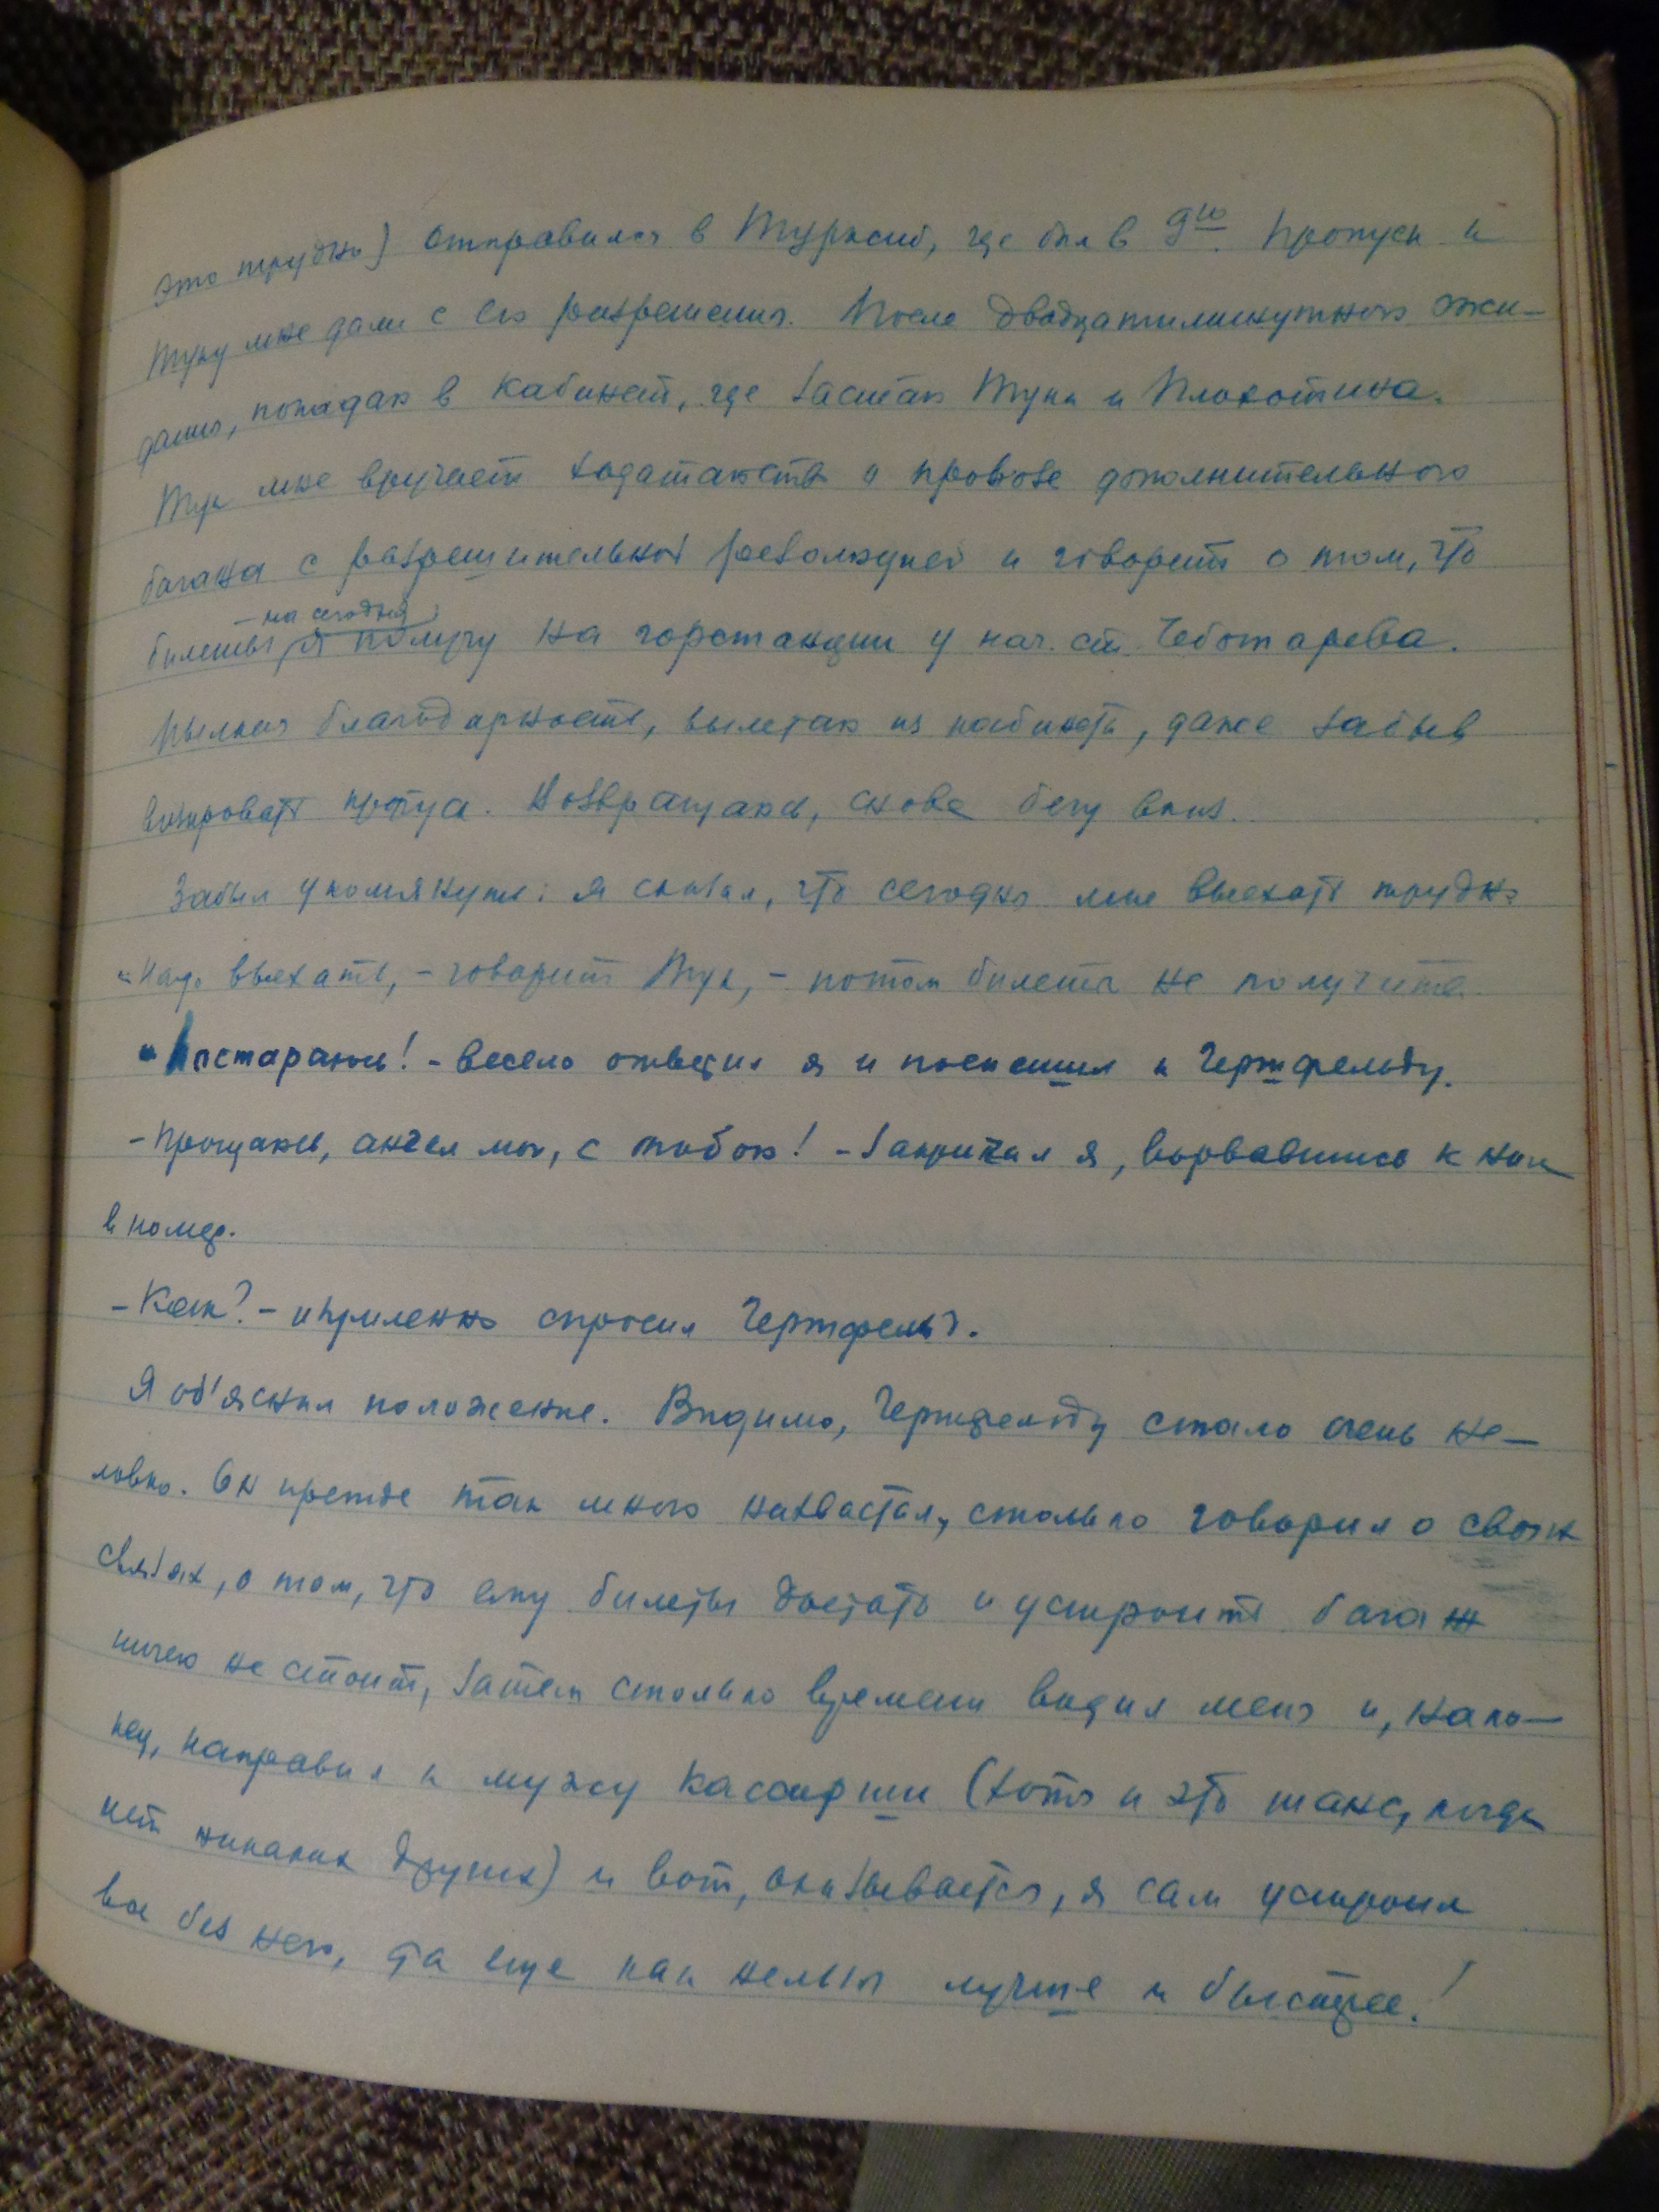 это трудно) отправился в Турксиб, где был в 9<sup>10</sup>. Пропуск к
Туку мне дали с его разрешения. После двадцатиминутного ожи-
дания, попадаю в кабинет, где застаю Тука и Плохотина.
Тук мне вручает ходатайство о провозе дополнительного
багажа с разрешительной резолюцией и говорит о том, что
билеты – на сегодня – я получу на горстанции у нач. ст. Чеботарева.
Пылкая благодарность, вылетаю из кабинета, даже забыв
визировать пропуск. Возвращаюсь, снова бегу вниз.
Забыл упомянуть: я сказал, что сегодня мне выехать трудно
"Надо выехать, – говорит Тук, – потом билета не получите.
"Постараюсь! – весело ответил я и поспешил к Гертфельду.
– Прощаюсь, ангел мой, с тобою! – закричал я, ворвавшись к ним
в номер.
– Как? – изумленно спросил Гертфельд.
Я об'яснил положение. Видимо, Гертфельду стало очень не-
ловко. Он прежде так много нахвастал, столько говорил о своих
связях, о том, что ему билеты достать и устроить багаж
ничего не стоит, затем столько времени водил меня и, нако-
нец, направил к мужу кассирши (хотя и это шанс, когда
нет никаких других) и вот, оказывается, я сам устроил
все без него, да еще как нельзя лучше и быстрее!